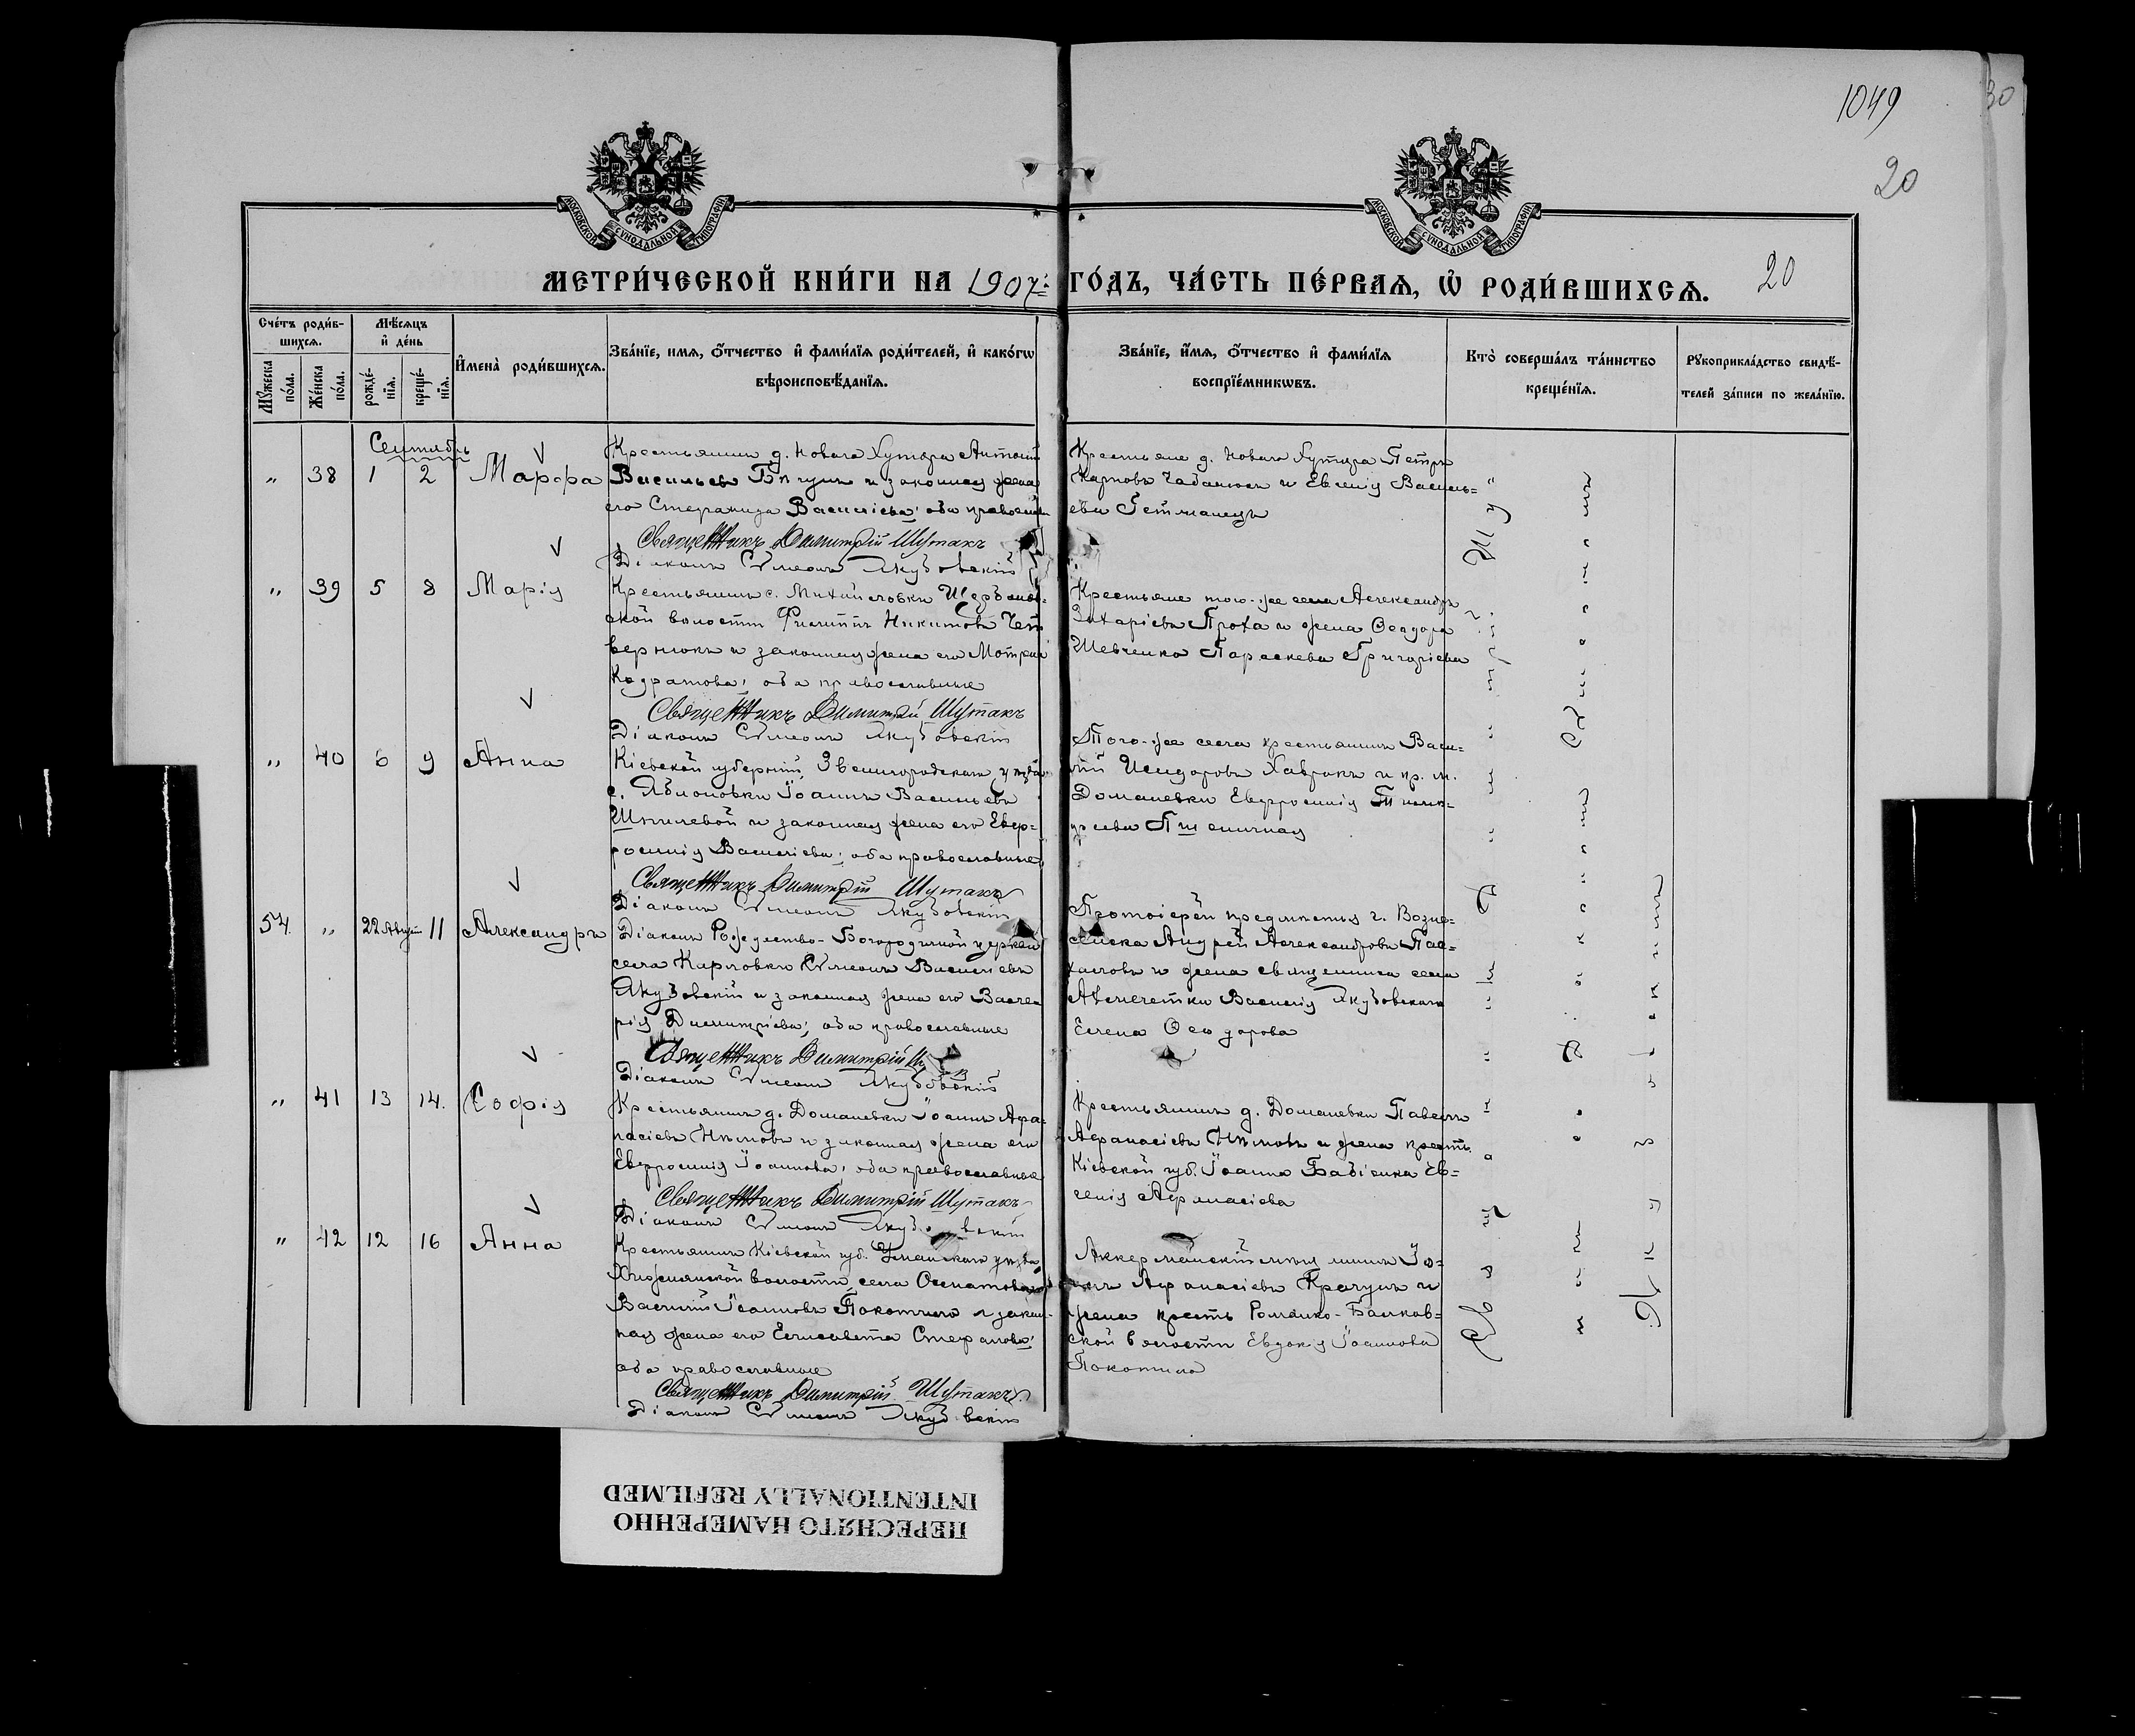 1049
30
20
МОСКОВСКОЙ СѴНОДАЛЬНОЙ ТИПОГРАФІИ
МОСКОВСКОЙ СѴНОДАЛЬНОЙ ТИПОГРАФІИ
МЕТРИ́ЧЕСКОЙ КНИ́ГИ НА 1907 ГО́ДЪ, ЧА́СТЬ ПЕ́РВАѦ, Ѡ҆ РОДИ́ВШИХСѦ. 20
Сче́тъ роди́в-
шихсѧ.
Мꙋжеска по́ла.
Же́нска по́ла.
Мѣ́сѧцъ
и҆ де́нь
рожде́-
нїѧ.
креще́-
нїѧ.
И҆мена̀ роди́вшихсѧ.
Зва́нїе, имѧ, ѻ҆́тчество и҆ фами́лїѧ роди́телей, и҆ како́гѡ
вѣроисповѣ́данїѧ.
Зва́нїе, и҆́мѧ, ѻ҆́тчество и҆ фами́лїѧ
воспрїе́мникѡвъ.
Кто̀ соверша́лъ та́инство
креще́нїѧ.
Рꙋкоприкла́дство свидѣ́-
телей за́писи по жела́нїю.
Сентябрь
„ 38 1 2 Марфа
Крестьянинъ д. Новаго Хутора Антоній
Васильевъ и законная жена
его Стефанида Василіева; оба православн
Священникъ Димитрій Шутакъ
Діаконъ Симеонъ Якубовскій
Крестьяне д. Новаго Хутора Петръ
Карповъ Чабанюкъ и Евгенія Василь=
ева Гетманецъ
„ 39 5 8 Марія
Крестьянинъ с. Михайловки
ской волости Филиппъ Никитовъ Чет
вернюкъ и законная жена его Мотрона
Кодратова; оба православные
Священникъ Димитрій Шутакъ
Діаконъ Симеонъ Якубовскій
Крестьяне того-же села Александръ
Захаріевъ Проха и жена Ѳеодора
Шевченко Параскева Григоріева
„ 40 6 9 Анна
Кіевской губерніи, Звенигородскаго уѣзда
с. Яблоновки Іоаннъ Васильевъ
и законная жена его Евф=
росинія Василіева; оба православные
Священникъ Димитрій Шутакъ
Діаконъ Симеонъ Якубовскій
Того-же села крестьянинъ Васи=
лій Исидоровъ Хаврокъ и кр. м.
Доманевки Евфросинія Тимо=
ѳеева Пшеничная
54. „ 22 Август 11 Александръ
Діаконъ Рождество-Богородичной церкви
села Карловки Симеонъ Василіевъ
Якубовскій и законная жена его Вале
рія Димитріева; оба православные
Священникъ Димитрій
Діаконъ Симеонъ Якубовскій
Протоіерей предмѣстья г. Возне=
сенска Андрей Александровъ
и жена священника села
Василія Якубовскаго
Елена Ѳеодорова
„ 41 13 14. Софія
Крестьянинъ д. Доманевки Іоаннъ Афа=
насіевъ и законная жена его
Евфросинія Іоаннова; оба православные
Священникъ Димитрій Шутакъ
Діаконъ Симеонъ Якубовскій
Крестьянинъ д. Доманевки Павелъ
Афанасіевъ и жена крестъ.
Кіевской губ. Іоанна Бабіенка Ев=
генія Афанасіева
„ 42 12 16 Анна
Крестьянинъ Кіевской губ. Уманскаго уѣзда
волости, села
Василій Іоанновъ Покотило и закон-
ная жена его Елисавета Стефанова;
оба православные
Священникъ Димитрій Шутакъ
Діаконъ Симеонъ Якубовскій
Аккерманскій мѣщанинъ Іо=
аннъ Афанасіевъ Крачунъ и
жена крестъ Романко-Балков=
ской волости Евдокія Іоаннова
Покотило
Священникъ Димитрій Шутакъ
съ діакономъ Симеономъ
Якубовскимъ
ПЕРЕСНЯТО НАМЕРЕННО
INTENTIONALLY REFILMED